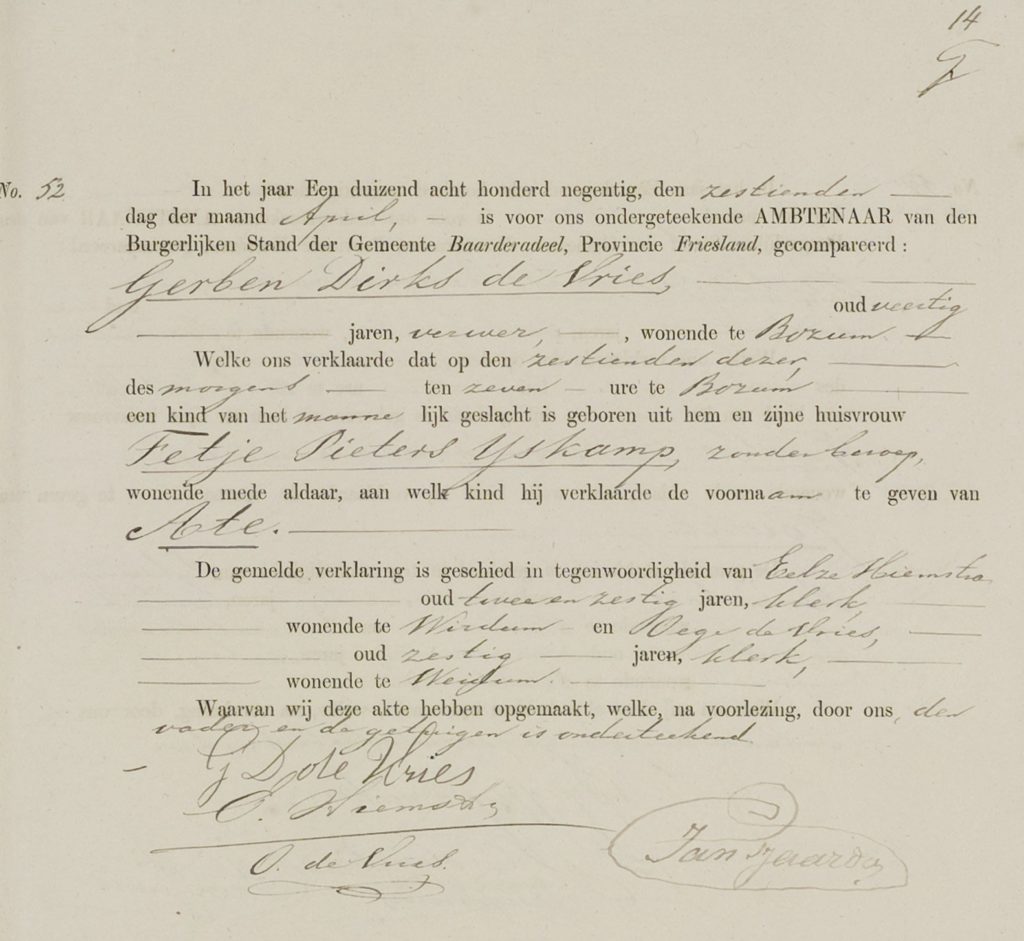 14
No. 52
In het jaar Een duizend acht honderd negentig, den zestienden
dag der maand April, is voor ons ondergeteekende AMBTENAAR van den
Burgerlijken Stand der Gemeente Baarderadeel, Provincie Friesland, gecompareerd :
Gerben Dirks de Vries,
oud veertig
jaren, verwer, , wonende te Bozum
Welke ons verklaarde dat op den zestienden dezer,
des morgens ten zeven ure te Bozum
een kind van het manne lijk geslacht is geboren uit hem en zijne huisvrouw
Fetje Pieters Yskamp, zonder beroep,
wonende mede aldaar, aan welk kind hij verklaarde de voornaam te geven van
Ate.
De gemelde verklaring is geschied in tegenwoordigheid van Eelze Hiemstra
oud twee en zestig jaren, klerk,
wonende te Wirdum en Oege de Vries,
oud zestig jaren, klerk,
wonende te Weidum.
Waarvan wij deze akte hebben opgemaakt, welke, na voorlezing, door ons, den
vader en de getuigen is onderteekend
G D de Vries
E. Hiemstra
O. de Vries.
Jan Tjaarda